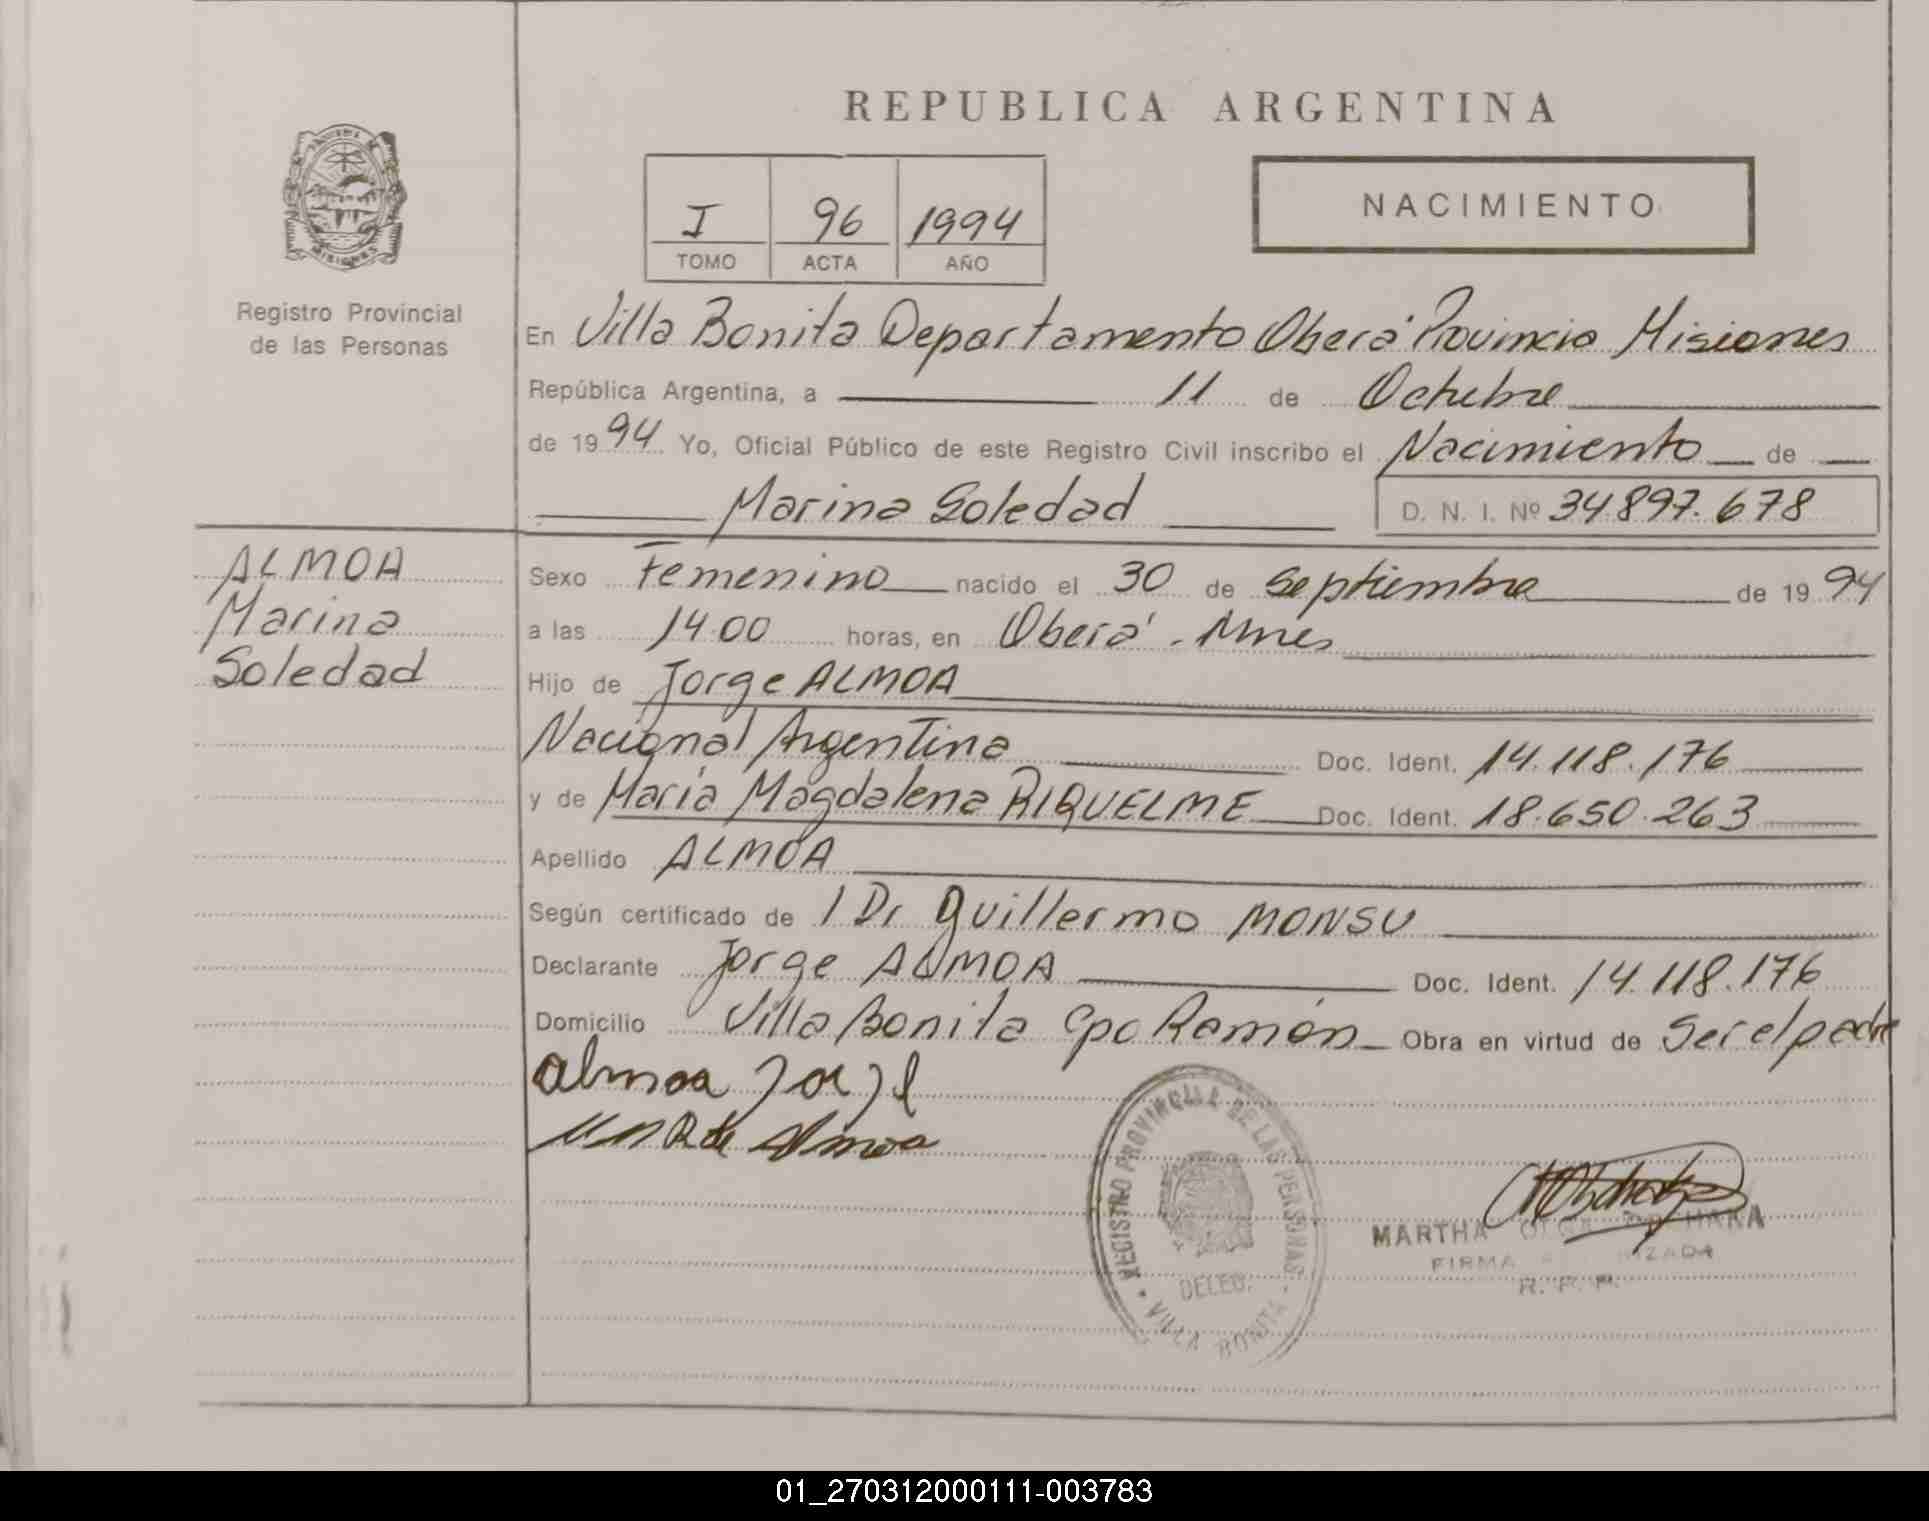 REPUBLICA ARGENTINA
MISIONES
Registro Provincial
de las Personas
I 96 1994
TOMO ACTA AÑO
NACIMIENTO
En Villa Bonita Departamento Oberá Provincia Misiones
República Argentina, a 11 de Octubre
de 1994 Yo, Oficial Público de este Registro Civil inscribo el Nacimiento de
Marina Soledad D. N. I. Nº 34.897.678
ALMOA
Marina
Soledad
Sexo Femenino nacido el 30 de Septiembre de 1994
a las 14.00 horas, en Oberá - Mnes
Hijo de Jorge ALMOA
Nacional Argentina Doc. Ident. 14.118.176
y de María Magdalena RIQUELME Doc. Ident. 18.650.263
Apellido ALMOA
Según certificado de 1 Dr Guillermo MONSU
Declarante Jorge ALMOA Doc. Ident. 14.118.176
Domicilio Villa Bonita Cpo Ramón Obra en virtud de Ser el padre
almoa Jorge
R de Almoa
REGISTRO PROVINCIAL DE LAS PERSONAS
DELEG.
VILLA BONITA
MARTHA OLGA
FIRMA AUTORIZADA
R. P. P.
01_270312000111-003783